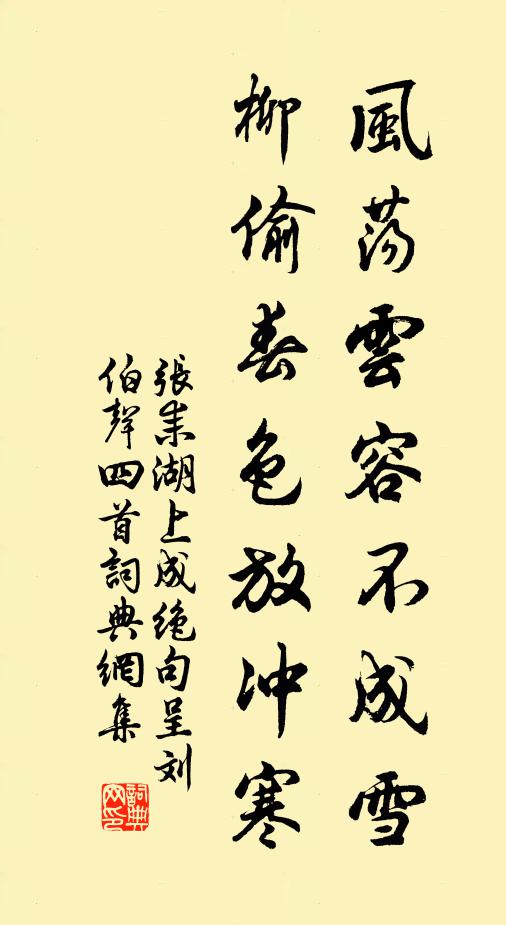 風蕩雲容不成雪
柳偷春色放冲寒
張耒湖上成絶句呈刘
伯聲四首詞典網集
詞典
网印